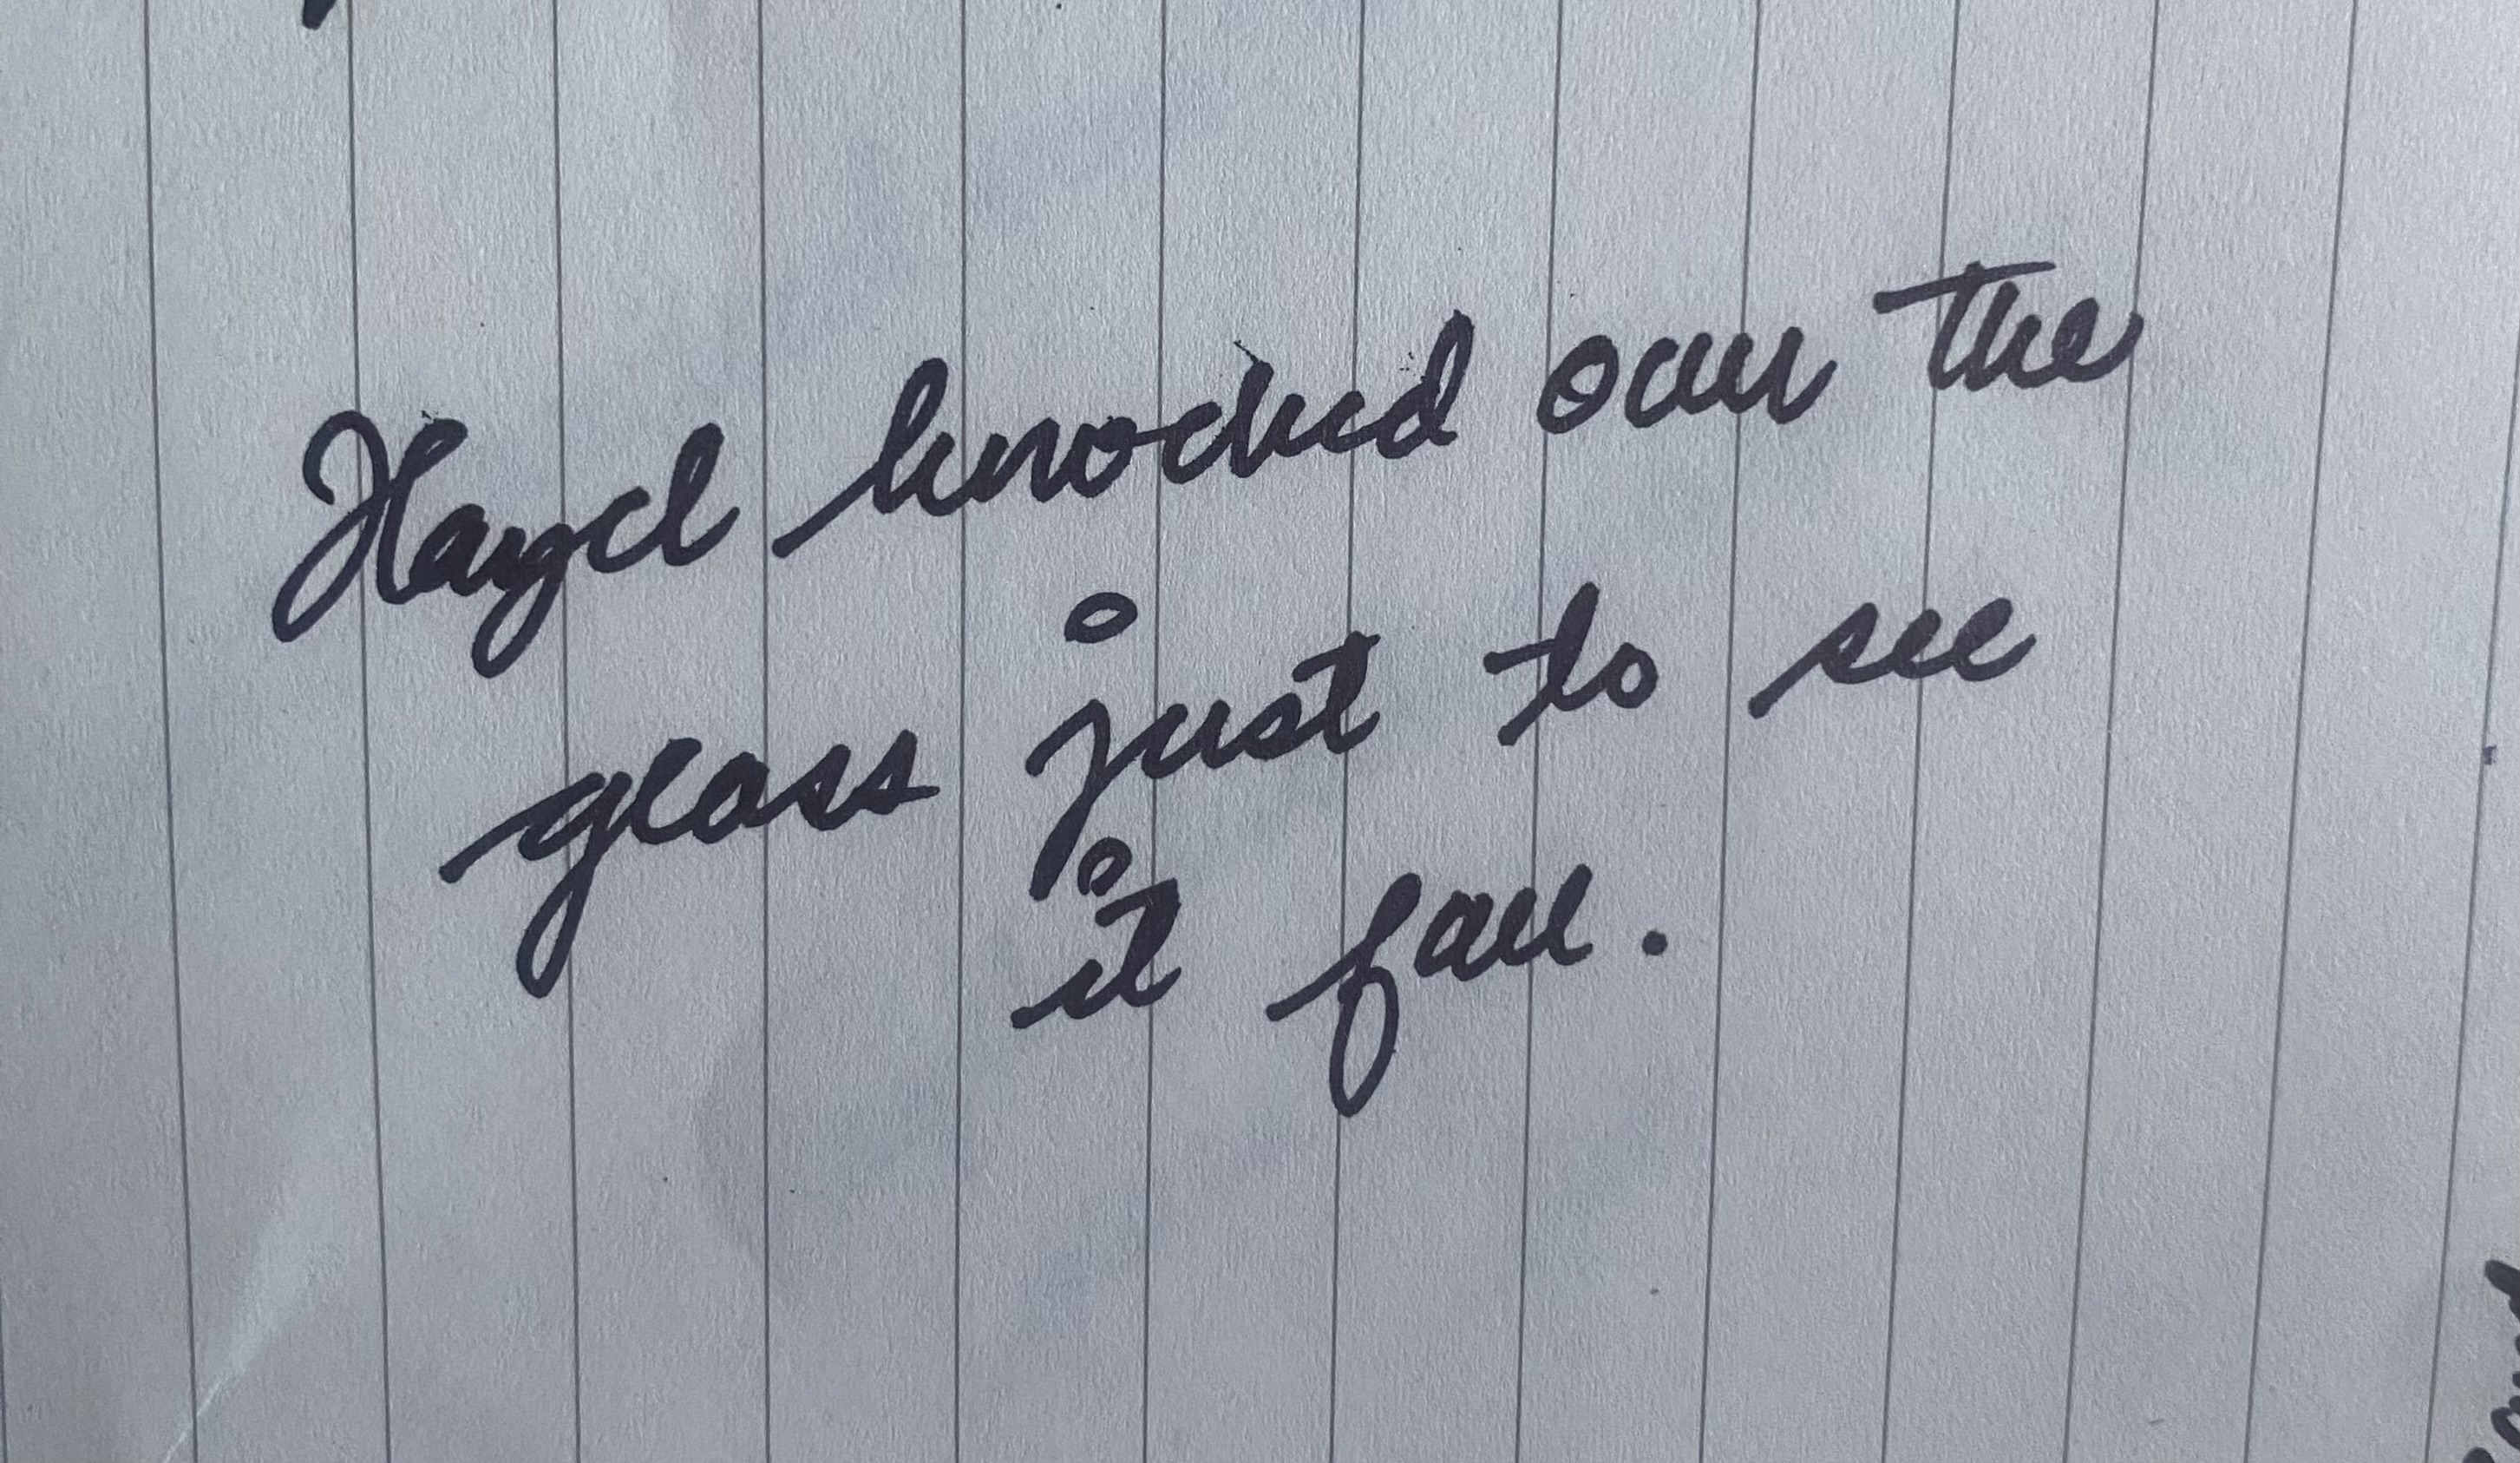 Hazel knocked over the
glass just to see
it fall.